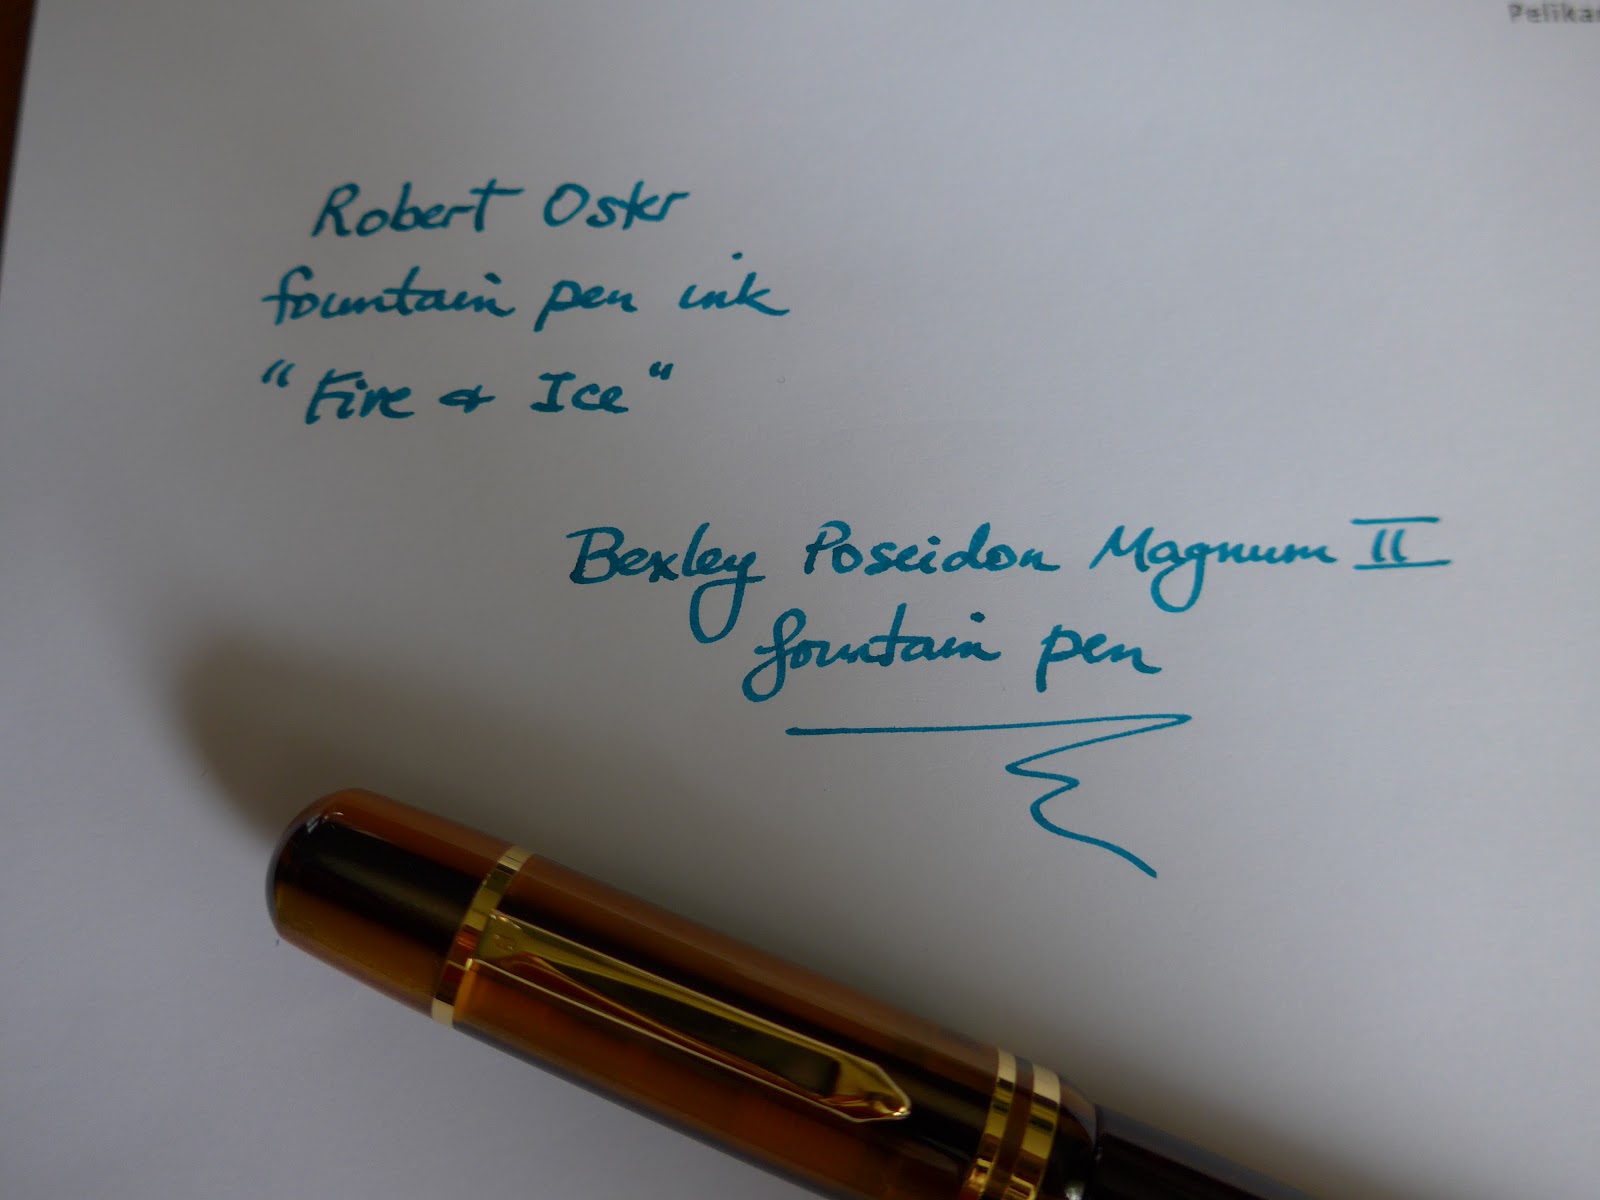 Pelika
Robert Oster
fountain pen ink
"Fire & Ice"
Bexley Poseidon Magnum II
fountain pen